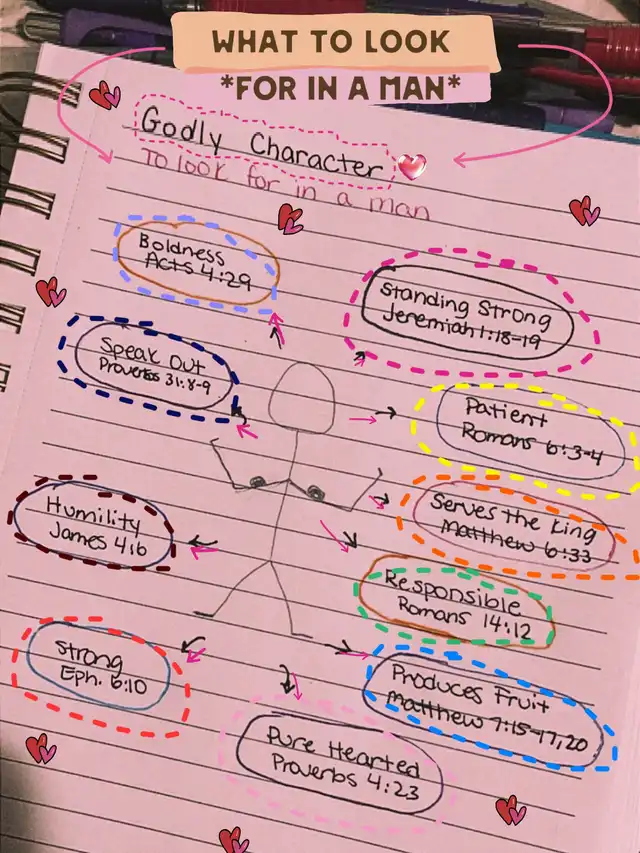 WHAT TO LOOK
*FOR IN A MAN*
Godly Character
To look for in a man
Boldness
Acts 4:29
Standing Strong
Jeremiah 1:18-19
Speak Out
Proverbs 31:8-9
Patient
Romans 6:3-4
Serves the King
Matthew 6:33
Humility
James 4:6
Responsible
Romans 14:12
Strong
Eph. 6:10
Produces Fruit
Matthew 7:15-17,20
Pure Hearted
Proverbs 4:23